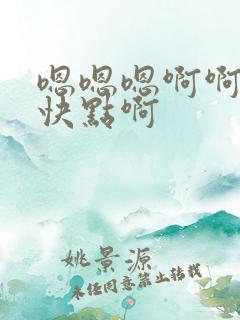 嗯嗯嗯啊啊
快點啊
姚景源
未任同意禁止转载